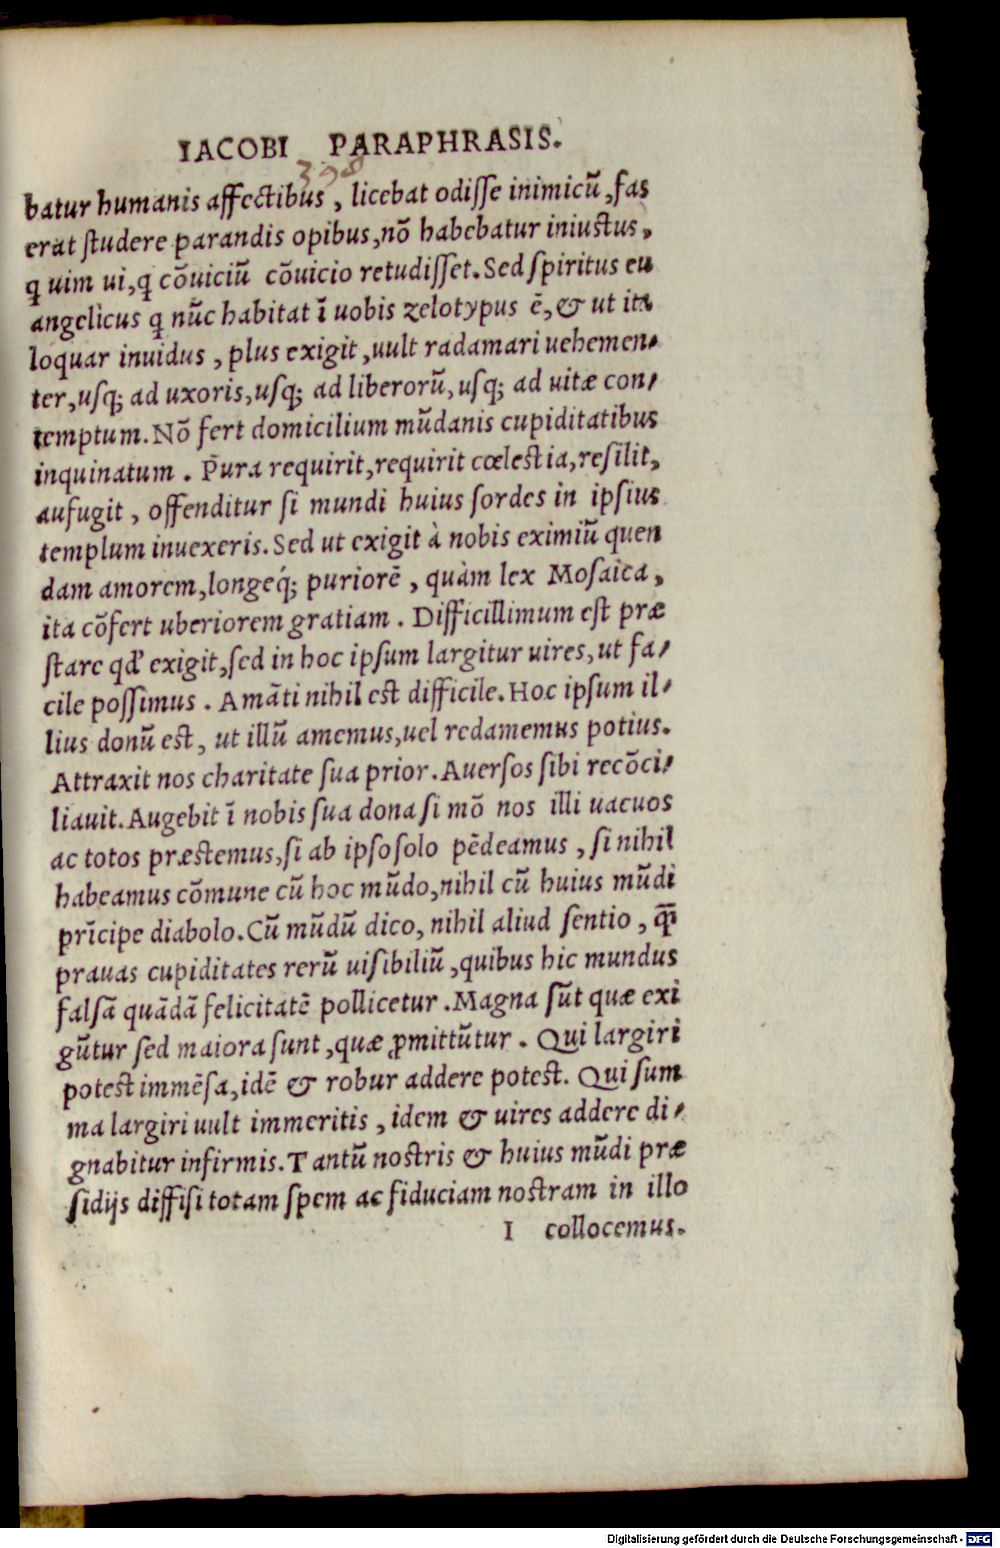 IACOBI PARAPHRASIS.
398
batur humanis affectibus, licebat odiſſe inimicũ, fas
erat ſtudere parandis opibus, nõ habebatur iniustus,
ꝗ uim ui, ꝗ cõuiciũ cõuicio retudiſſet. Sed ſpiritus eu
angelicus ꝗ nũc habitat ĩ uobis zelotypus ẽ, & ut ita
loquar inuidus, plus exigit, uult radamari uehemen⸗
ter, uſq; ad uxoris, uſq; ad liberorũ, uſq; ad uitæ con⸗
temptum. Nõ fert domicilium mũdanis cupiditatibus
inquinatum. Pura requirit, requirit cœlestia, reſilit,
aufugit, offenditur ſi mundi huius ſordes in ipſius
templum inuexeris. Sed ut exigit à nobis eximiũ quen
dam amorem, longeq́; puriorẽ, quàm lex Moſaica,
ita cõfert uberiorem gratiam. Difficillimum eſt præ
ſtare qd' exigit, ſed in hoc ipſum largitur uires, ut fa⸗
cile poſſimus. Amãti nihil eſt difficile. Hoc ipſum il⸗
lius donũ eſt, ut illũ amemus, uel redamemus potius.
Attraxit nos charitate ſua prior. Auerſos ſibi recõci⸗
liauit. Augebit ĩ nobis ſua dona ſi mõ nos illi uacuos
ac totos præſtemus, ſi ab ipſo ſolo pẽdeamus, ſi nihil
habeamus cõmune cũ hoc mũdo, nihil cũ huius mũdi
prĩcipe diabolo. Cũ mũdũ dico, nihil aliud ſentio, ꝗ̃
prauas cupiditates rerũ uiſibiliũ, quibus hic mundus
falſã quãdã felicitatẽ pollicetur. Magna ſũt quæ exi
gũtur ſed maiora ſunt, quæ ꝓmittũtur. Qui largiri
poteſt immẽſa, idẽ & robur addere poteſt. Qui ſum
ma largiri uult immeritis, idem & uires addere di⸗
gnabitur infirmis. Tantũ noſtris & huius mũdi præ
ſidijs diffiſi totam ſpem ac fiduciam noſtram in illo
I collocemus.
Digitalisierung gefördert durch die Deutsche Forschungsgemeinschaft - DFG